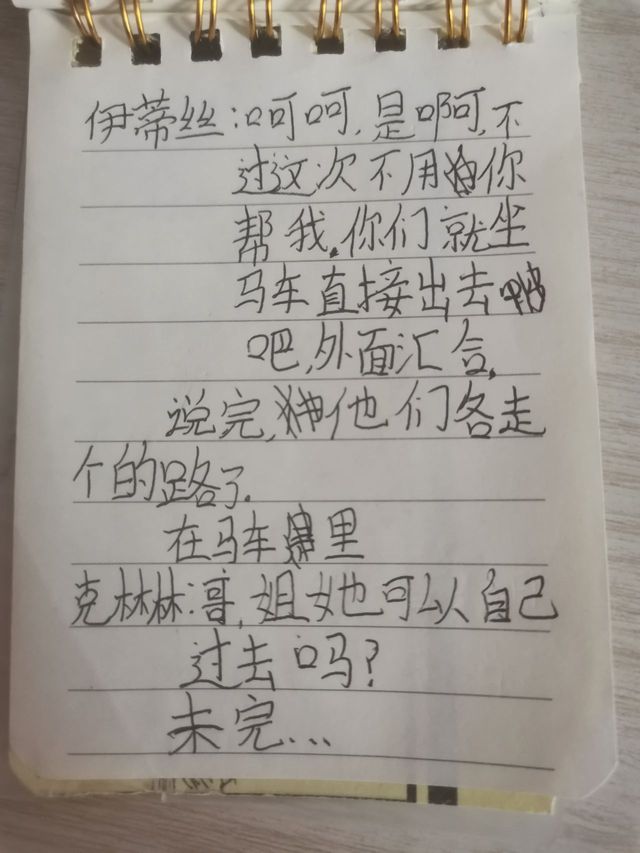 伊蒂丝:呵呵,是啊,不
过这次不用你
帮我,你们就坐
马车直接出去
吧,外面汇合,
说完,他们各走
个的路了.
在马车里
克林林:哥,姐她可以自己
过去吗?
未完...